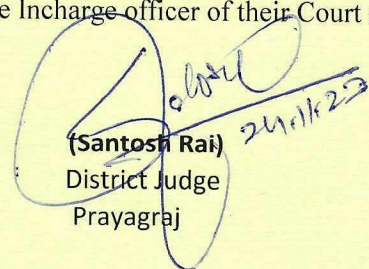 e Incharge officer of their Court
24.11.22
(Santosh Rai)
District Judge
Prayagraj